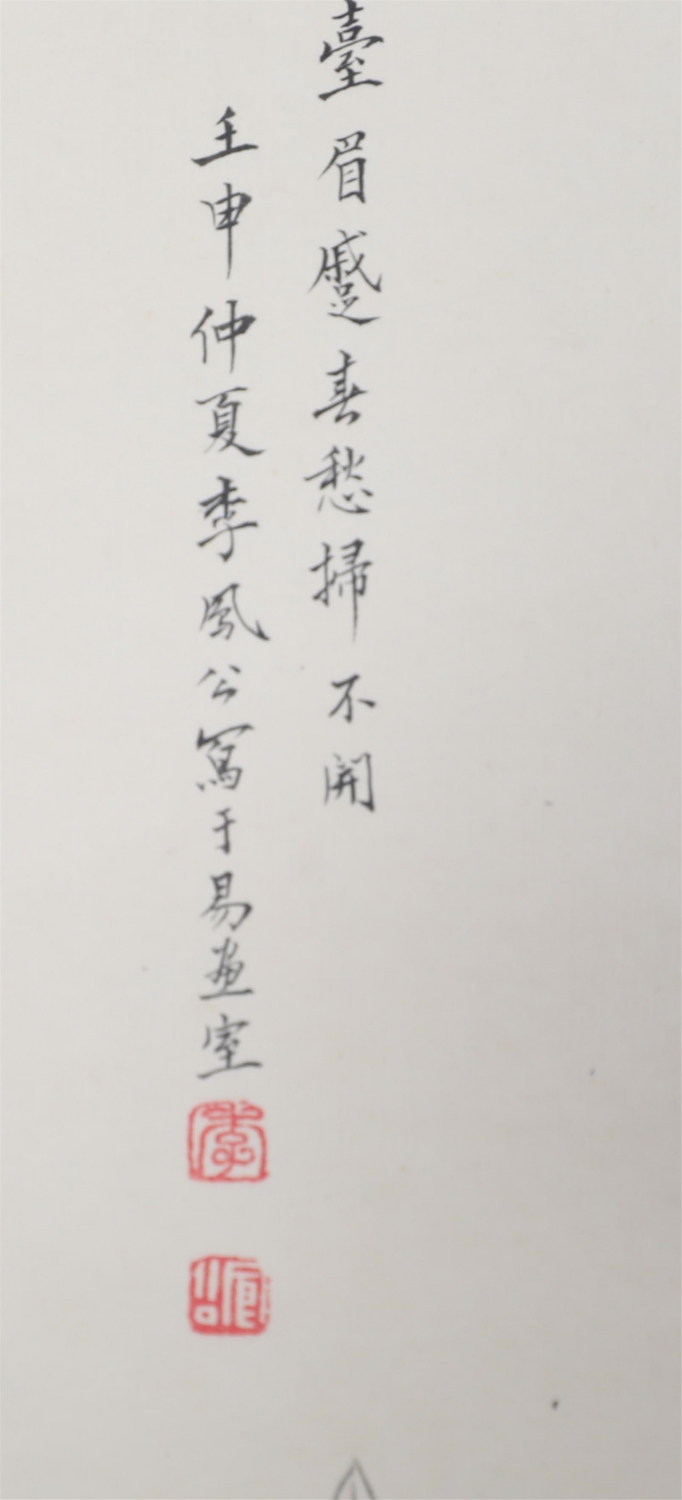 臺眉蹙春愁掃不開
壬申仲夏季風公寫于易畫室